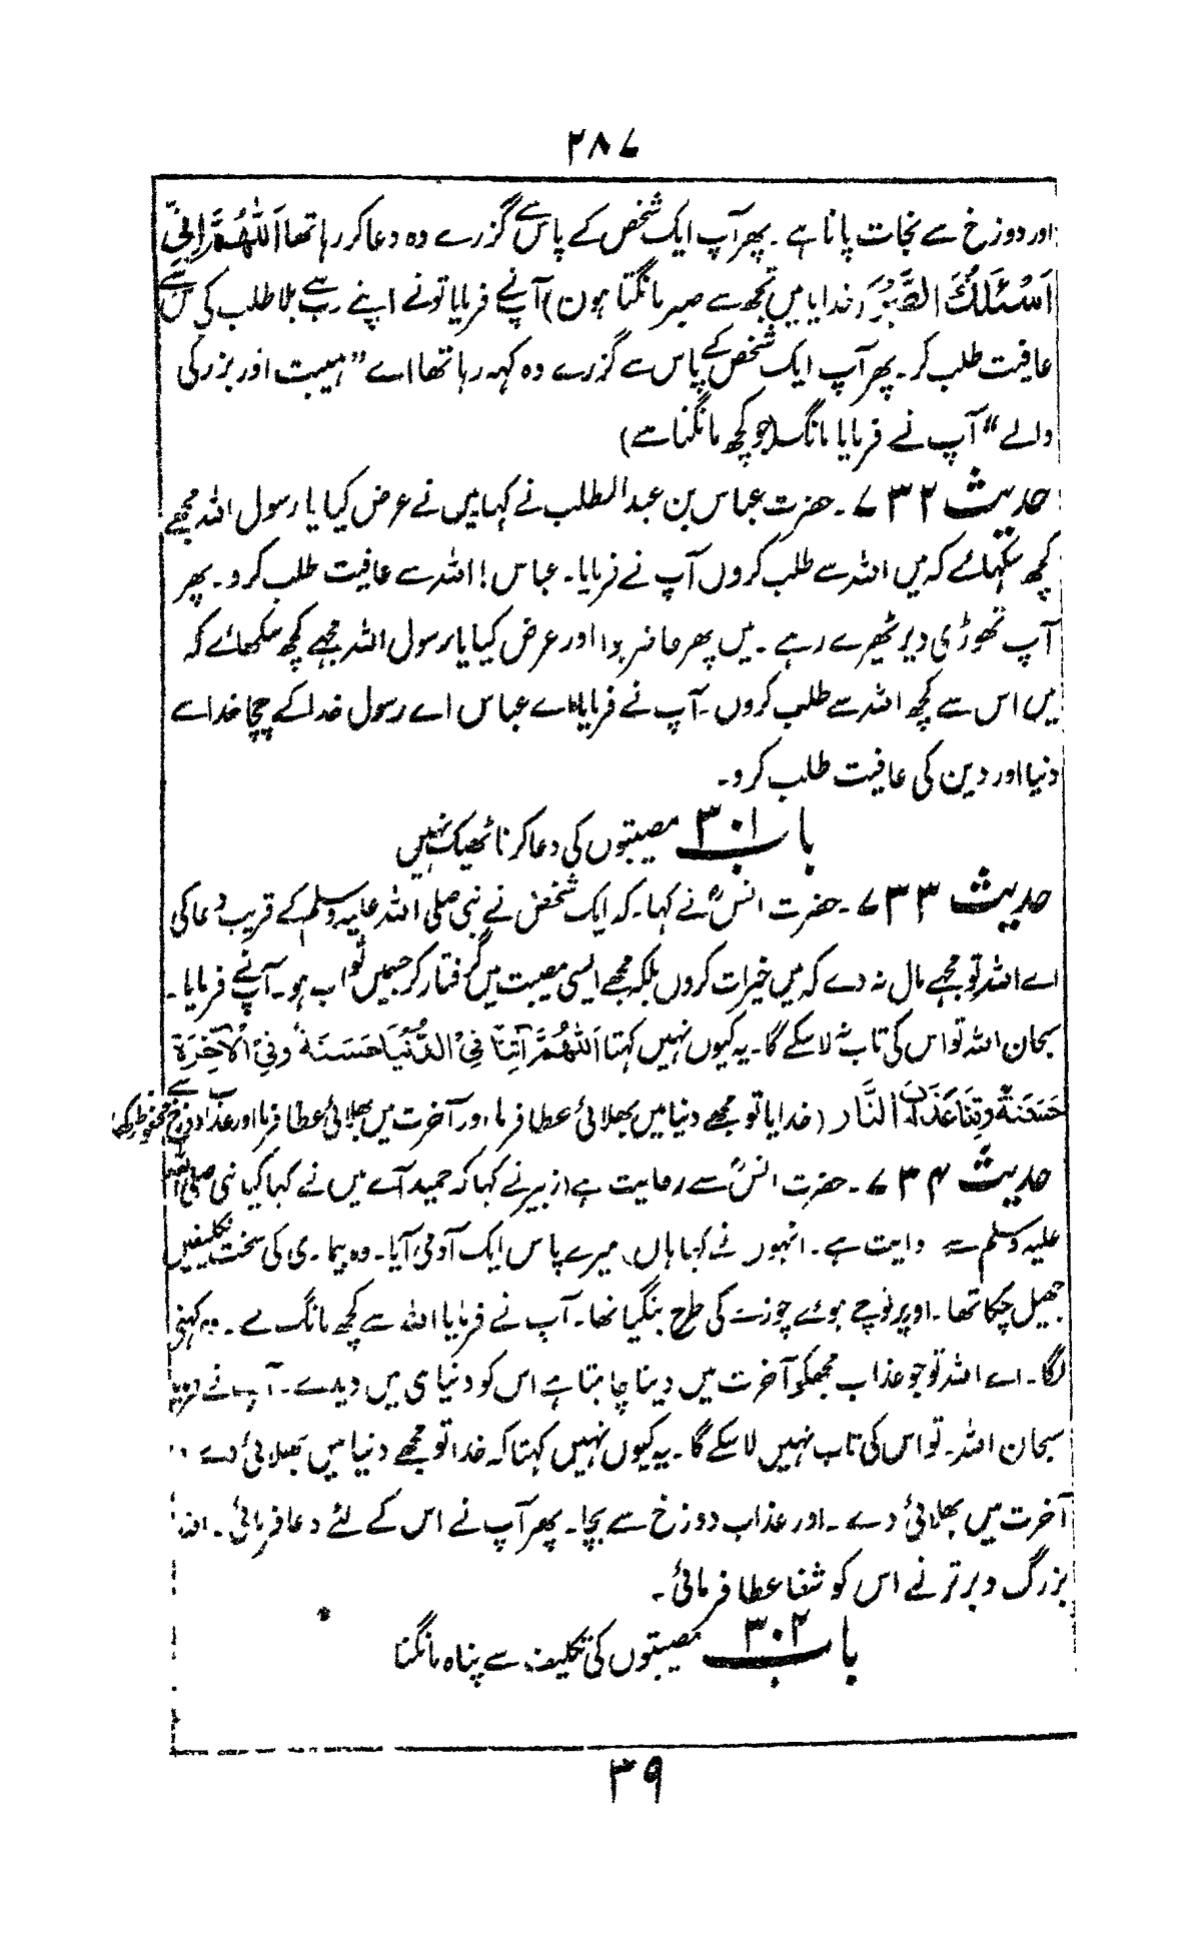 ۲۸۷
اور دوزخ سے نجات پانا ہے۔ پھر آپ ایک شخص کے پاس سے گزرے وہ دعا کر رہا تھا اَللّٰهُمَّ اِنِّیْ
اَسْئَلُكَ الصَّبْرَ (خدایا میں تجھ سے صبر مانگتا ہوں) آپنے فرمایا تونے اپنے رب سے بلا طلب کی اس سے
عافیت طلب کر۔ پھر آپ ایک شخص کے پاس سے گزرے وہ کہہ رہا تھا اے ”ہیبت اور بزرگی
والے“ آپ نے فرمایا مانگ (جو کچھ مانگنا ہے)
حدیث ۷۳۲۔ حضرت عباس بن عبدالمطلب نے کہا میں نے عرض کیا یا رسول اللہ مجھے
کچھ سکھائے کہ میں اللہ سے طلب کروں آپ نے فرمایا۔ عباس! اللہ سے عافیت طلب کرو۔ پھر
آپ تھوڑی دیر ٹھیرے رہے۔ میں پھر حاضر ہوا اور عرض کیا یا رسول اللہ مجہے کچھ سکھائے کہ
میں اس سے کچھ اللہ سے طلب کروں۔ آپ نے فرمایا اے عباس اے رسول خدا کے چچا خدا سے
دنیا اور دین کی عافیت طلب کرو۔
باب ۳۰۱ مصیبتوں کی دعا کرنا ٹھیک نہیں
حدیث ۷۳۳۔ حضرت انسؓ نے کہا۔ کہ ایک شخص نے نبی صلی اللہ علیہ وسلم کے قریب دعا کی
اے اللہ تو مجہے مال نہ دے کہ میں خیرات کروں بلکہ مجھے ایسی مصیبت میں گرفتار کر جسمیں ثواب ہو۔ آپنے فرمایا۔
سبحان اللہ تو اس کی تاب نہ لا سکے گا۔ یہ کیوں نہیں کہتا اَللّٰهُمَّ اٰتِنَا فِیْ الدُّنْیَا حَسَنَةً وَفِیْ الْاٰخِرَةِ
حَسَنَةً وَقِنَا عَذَابَ النَّار (خدایا تو مجھے دنیا میں بھلائی عطا فرما اور آخرت میں بھلائی عطا فرما اور عذاب دوزخ سے محفوظ رکھ)
حدیث ۷۳۴۔ حضرت انسؓ سے روایت ہے زبیر نے کہا کہ حمید آے میں نے کہا کیا نبی صلی اللہ
علیہ وسلم سے روایت ہے۔ انہوں نے کہا ہاں، میرے پاس ایک آدمی آیا۔ وہ بیماری کی سخت تکلیفیں
جھیل چکا تھا۔ اور نوچے ہوئے چوزے کی طرح بنگیا تھا۔ آپ نے فرمایا اللہ سے کچھ مانگ لے۔ وہ کہنی
لگا۔ اے اللہ تو جو عذاب مجھکو آخرت میں دینا چاہتا ہے اس کو دنیا ہی میں دیدے۔ آپ نے فرمایا
سبحان اللہ۔ تو اس کی تاب نہیں لا سکے گا۔ یہ کیوں نہیں کہتا کہ خدا تو مجھے دنیا میں بھلائی دے
آخرت میں بھلائی دے۔ اور عذاب دوزخ سے بچا۔ پھر آپ نے اس کے لئے دعا فرمائی۔
بزرگ و برتر نے اس کو شفا عطا فرمائی۔
باب ۳۰۲ مصیبتوں کی تکلیف سے پناہ مانگنا
۳۹